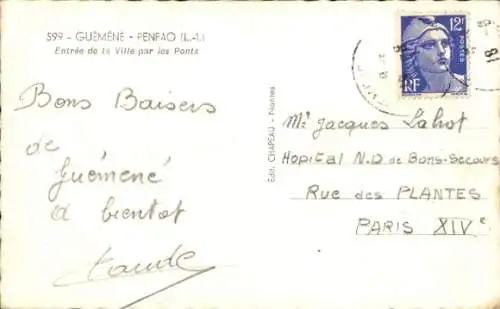 599 - GUÉMÉNÉ - PENFAO (L.-I.)
Entrée de la Ville par les Ponts
12F
POSTES
RF
18
Bons Baisers
de
Guémené
a bientot
Edit. CHAPEAU - Nantes
Mr Jacques Lahot
HOPITAL N.D de BONS-SECOURS
RUE des PLANTES
PARIS XIVe